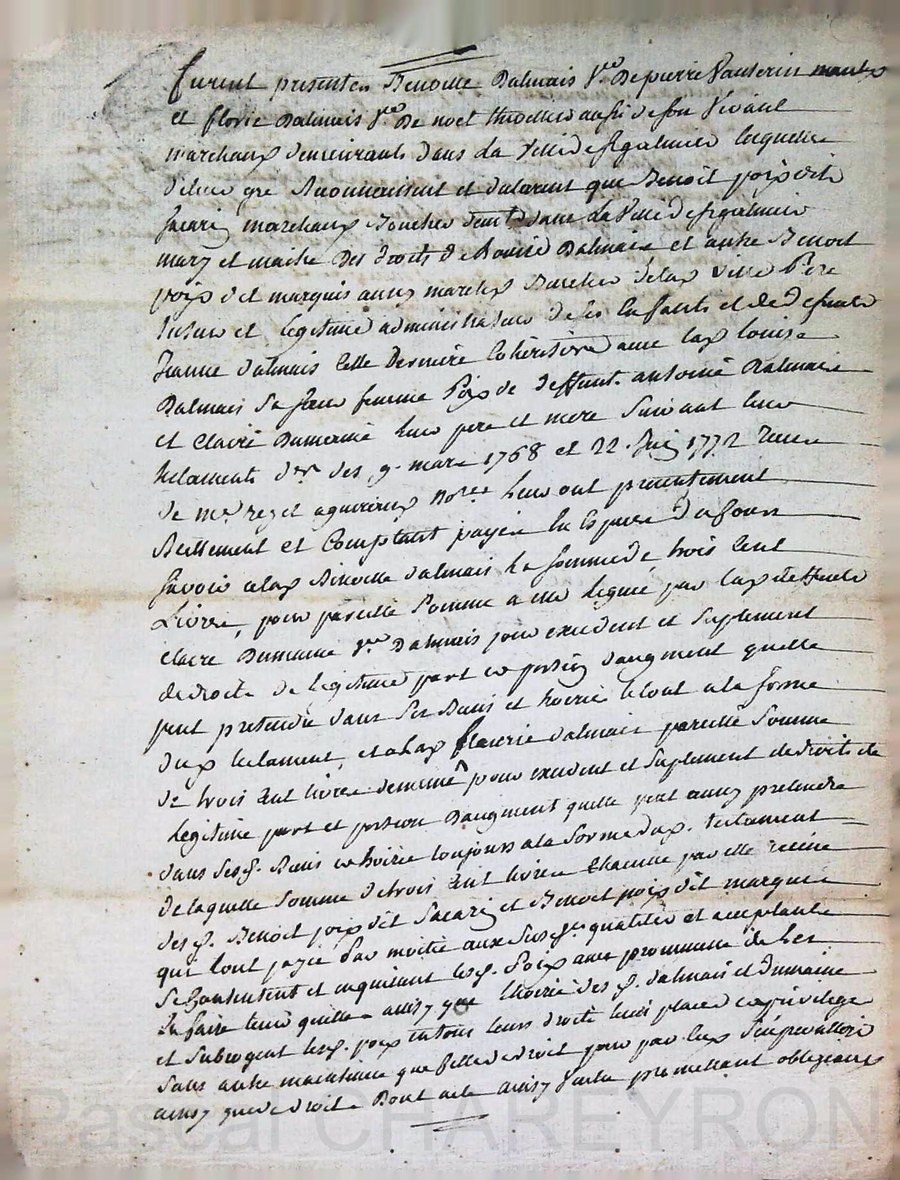 furent presentes Benoitte Dalmais v.ve De pierre Vauterin
et florie Dalmais v.ve De noel thiollier aussi de son vivant
marchaux demeurants dans la ville de lesquelles
de leur gré Reconnaissent et declarent que Benoit poix dit
Sacari marchaux Boucher dem.t dans la ville de
mary et maitre Des droits De Louise Dalmais et autre Benoit
poix dit marquis aussy marchx Boucher delad ville Pere
tuteur et legitime administrateur de ses Enfants et de defunte
Jeanne dalmais cette Derniere Coheritiere avec lad louise
Dalmais sa soeur femme Poix de deffunt antoine Dalmais
et claire Dumaine leur pere et mere suivant leur
testaments des 9. mars 1768 et 22. 1772 recus
de m.e et not.res leur ont presentement
Reellement et Comptant payée En Espece De Cours
savoir alad Benoitte dalmais la somme de trois Cent
Livres, pour pareille somme a elle leguée par lad deffunte
claire Dumaine v.ve Dalmais pour excedent et suplement
de droits De legitime part et portion daugment quelle
peut pretendre dans ses Biens et hoirie le tout a la forme
dud testament, et alad florie dalmais pareille somme
De trois Cent livres de meme pour excedent et suplement de droits de
legitime part et portion Daugment quelle peut aussy pretendre
dans sesd. Biens et hoirie toujours ala forme dud. testament
de laquelle somme de trois Cent livres Chacune par elle recue
desd. Benoit poix dit Sacari et Benoit poix dit marquis
qui lont payée par moitie aux susd. qualites et acceptants
se Contentent et en quittent lesd. Poix avec promesse de les
en faire tenir quittes aussy que lhoirie desd. dalmais et Dumaine
et subrogent lesd. poix en tous leurs droits leurs place et privilege
sans autre maintenue que celle de droit pour par eux
ainsy que de droit. Dont acte ainsy fait promettant obligeant
Pascal CHAREYRON